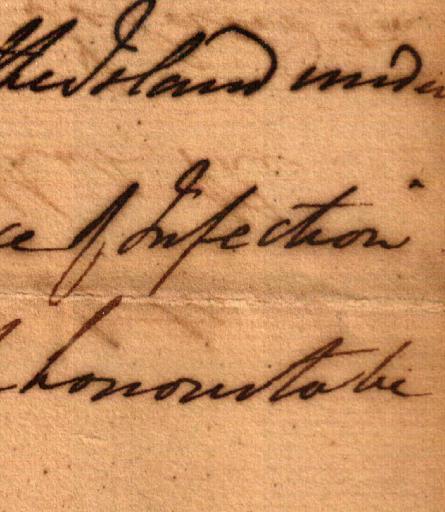 the Island und
ce of Infection
honour to be